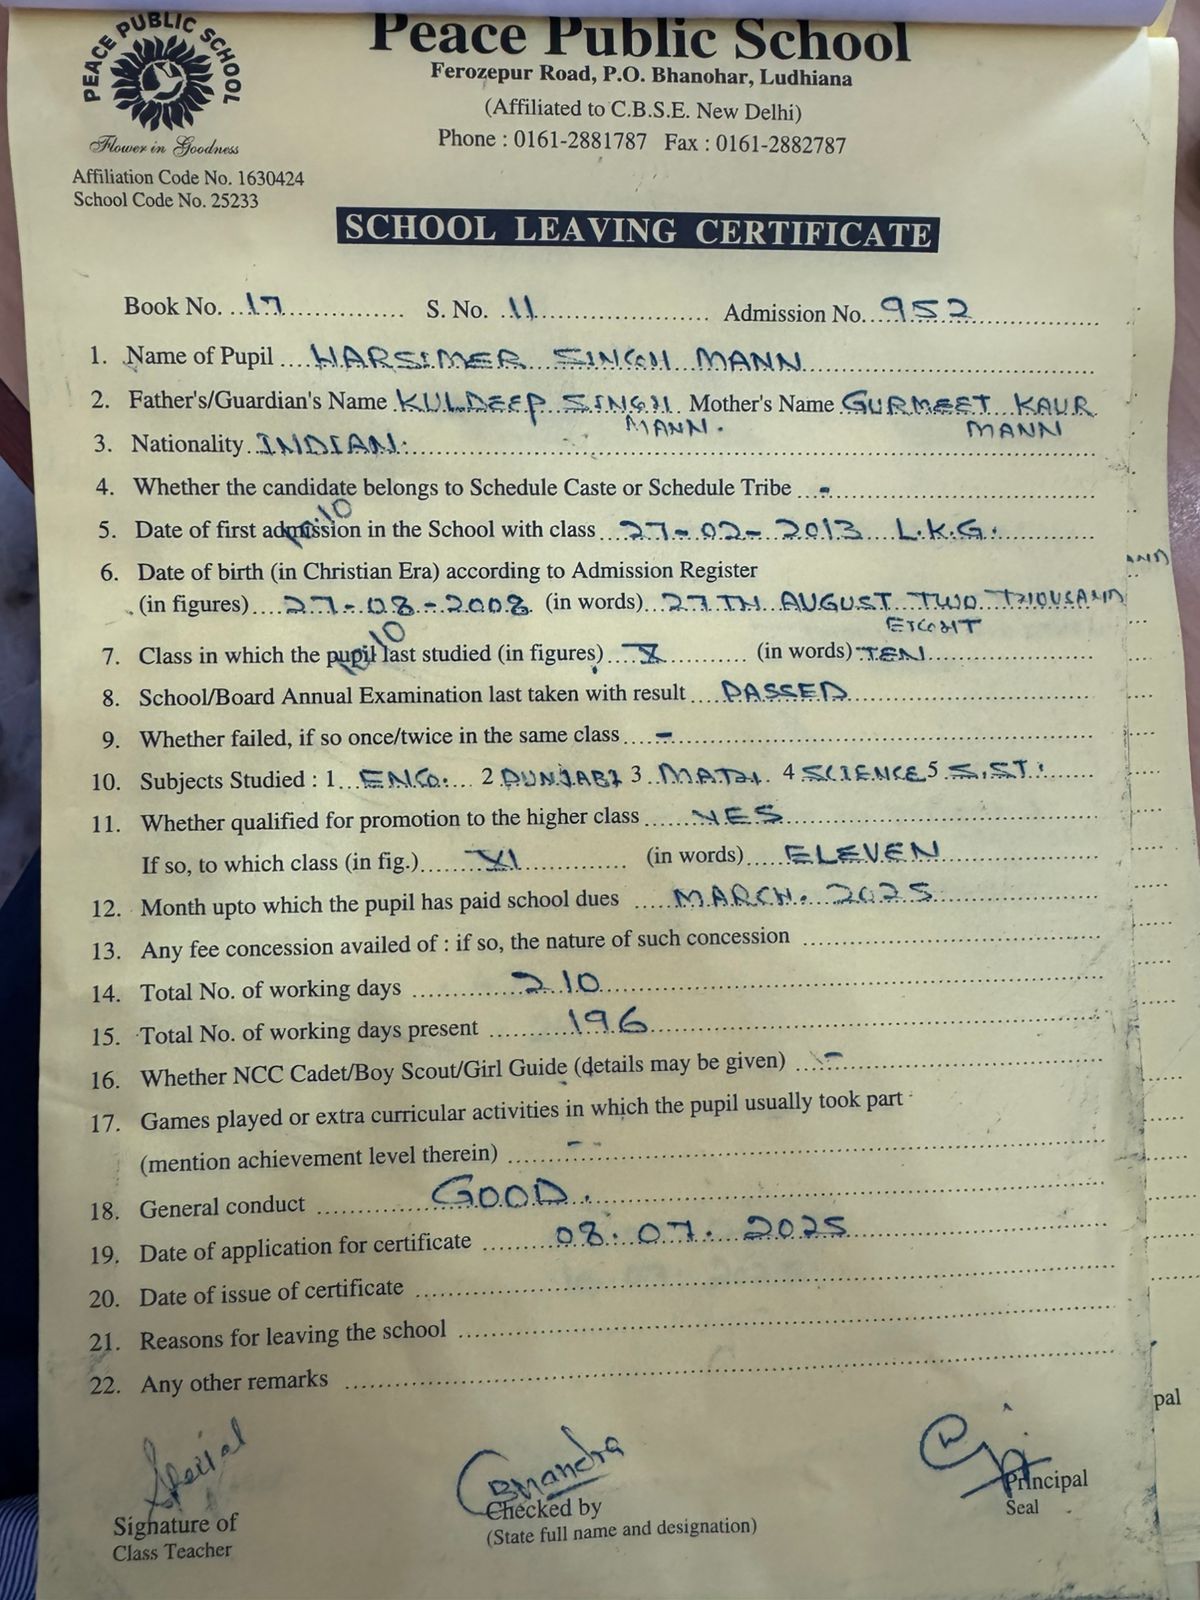 PEACE PUBLIC SCHOOL
Flower in Goodness
Peace Public School
Ferozepur Road, P.O. Bhanohar, Ludhiana
(Affiliated to C.B.S.E. New Delhi)
Phone : 0161-2881787 Fax : 0161-2882787
Affiliation Code No. 1630424
School Code No. 25233
SCHOOL LEAVING CERTIFICATE
Book No. 17 S. No. 11 Admission No. 952
1. Name of Pupil HARSIMER SINGH MANN
2. Father's/Guardian's Name KULDEEP SINGH Mother's Name GURMEET KAUR
MANN. MANN
3. Nationality INDIAN.
4. Whether the candidate belongs to Schedule Caste or Schedule Tribe -
5. Date of first admission in the School with class 27-02-2013 L.K.G.
6. Date of birth (in Christian Era) according to Admission Register
(in figures) 27-08-2008 (in words) 27TH AUGUST TWO THOUSAND
EIGHT
7. Class in which the pupil last studied (in figures) X (in words) TEN
8. School/Board Annual Examination last taken with result PASSED
9. Whether failed, if so once/twice in the same class -
10. Subjects Studied : 1. ENG. 2 PUNJABI 3 MATH. 4 SCIENCE 5 S.ST.
11. Whether qualified for promotion to the higher class YES
If so, to which class (in fig.) XI (in words) ELEVEN
12. Month upto which the pupil has paid school dues MARCH. 2025
13. Any fee concession availed of : if so, the nature of such concession
14. Total No. of working days 210
15. Total No. of working days present 196
16. Whether NCC Cadet/Boy Scout/Girl Guide (details may be given) -
17. Games played or extra curricular activities in which the pupil usually took part
(mention achievement level therein) -
18. General conduct GOOD.
19. Date of application for certificate 08.07.2025
20. Date of issue of certificate
21. Reasons for leaving the school
22. Any other remarks
Bhandra
Signature of
Class Teacher
Checked by
(State full name and designation)
Principal
Seal
pal